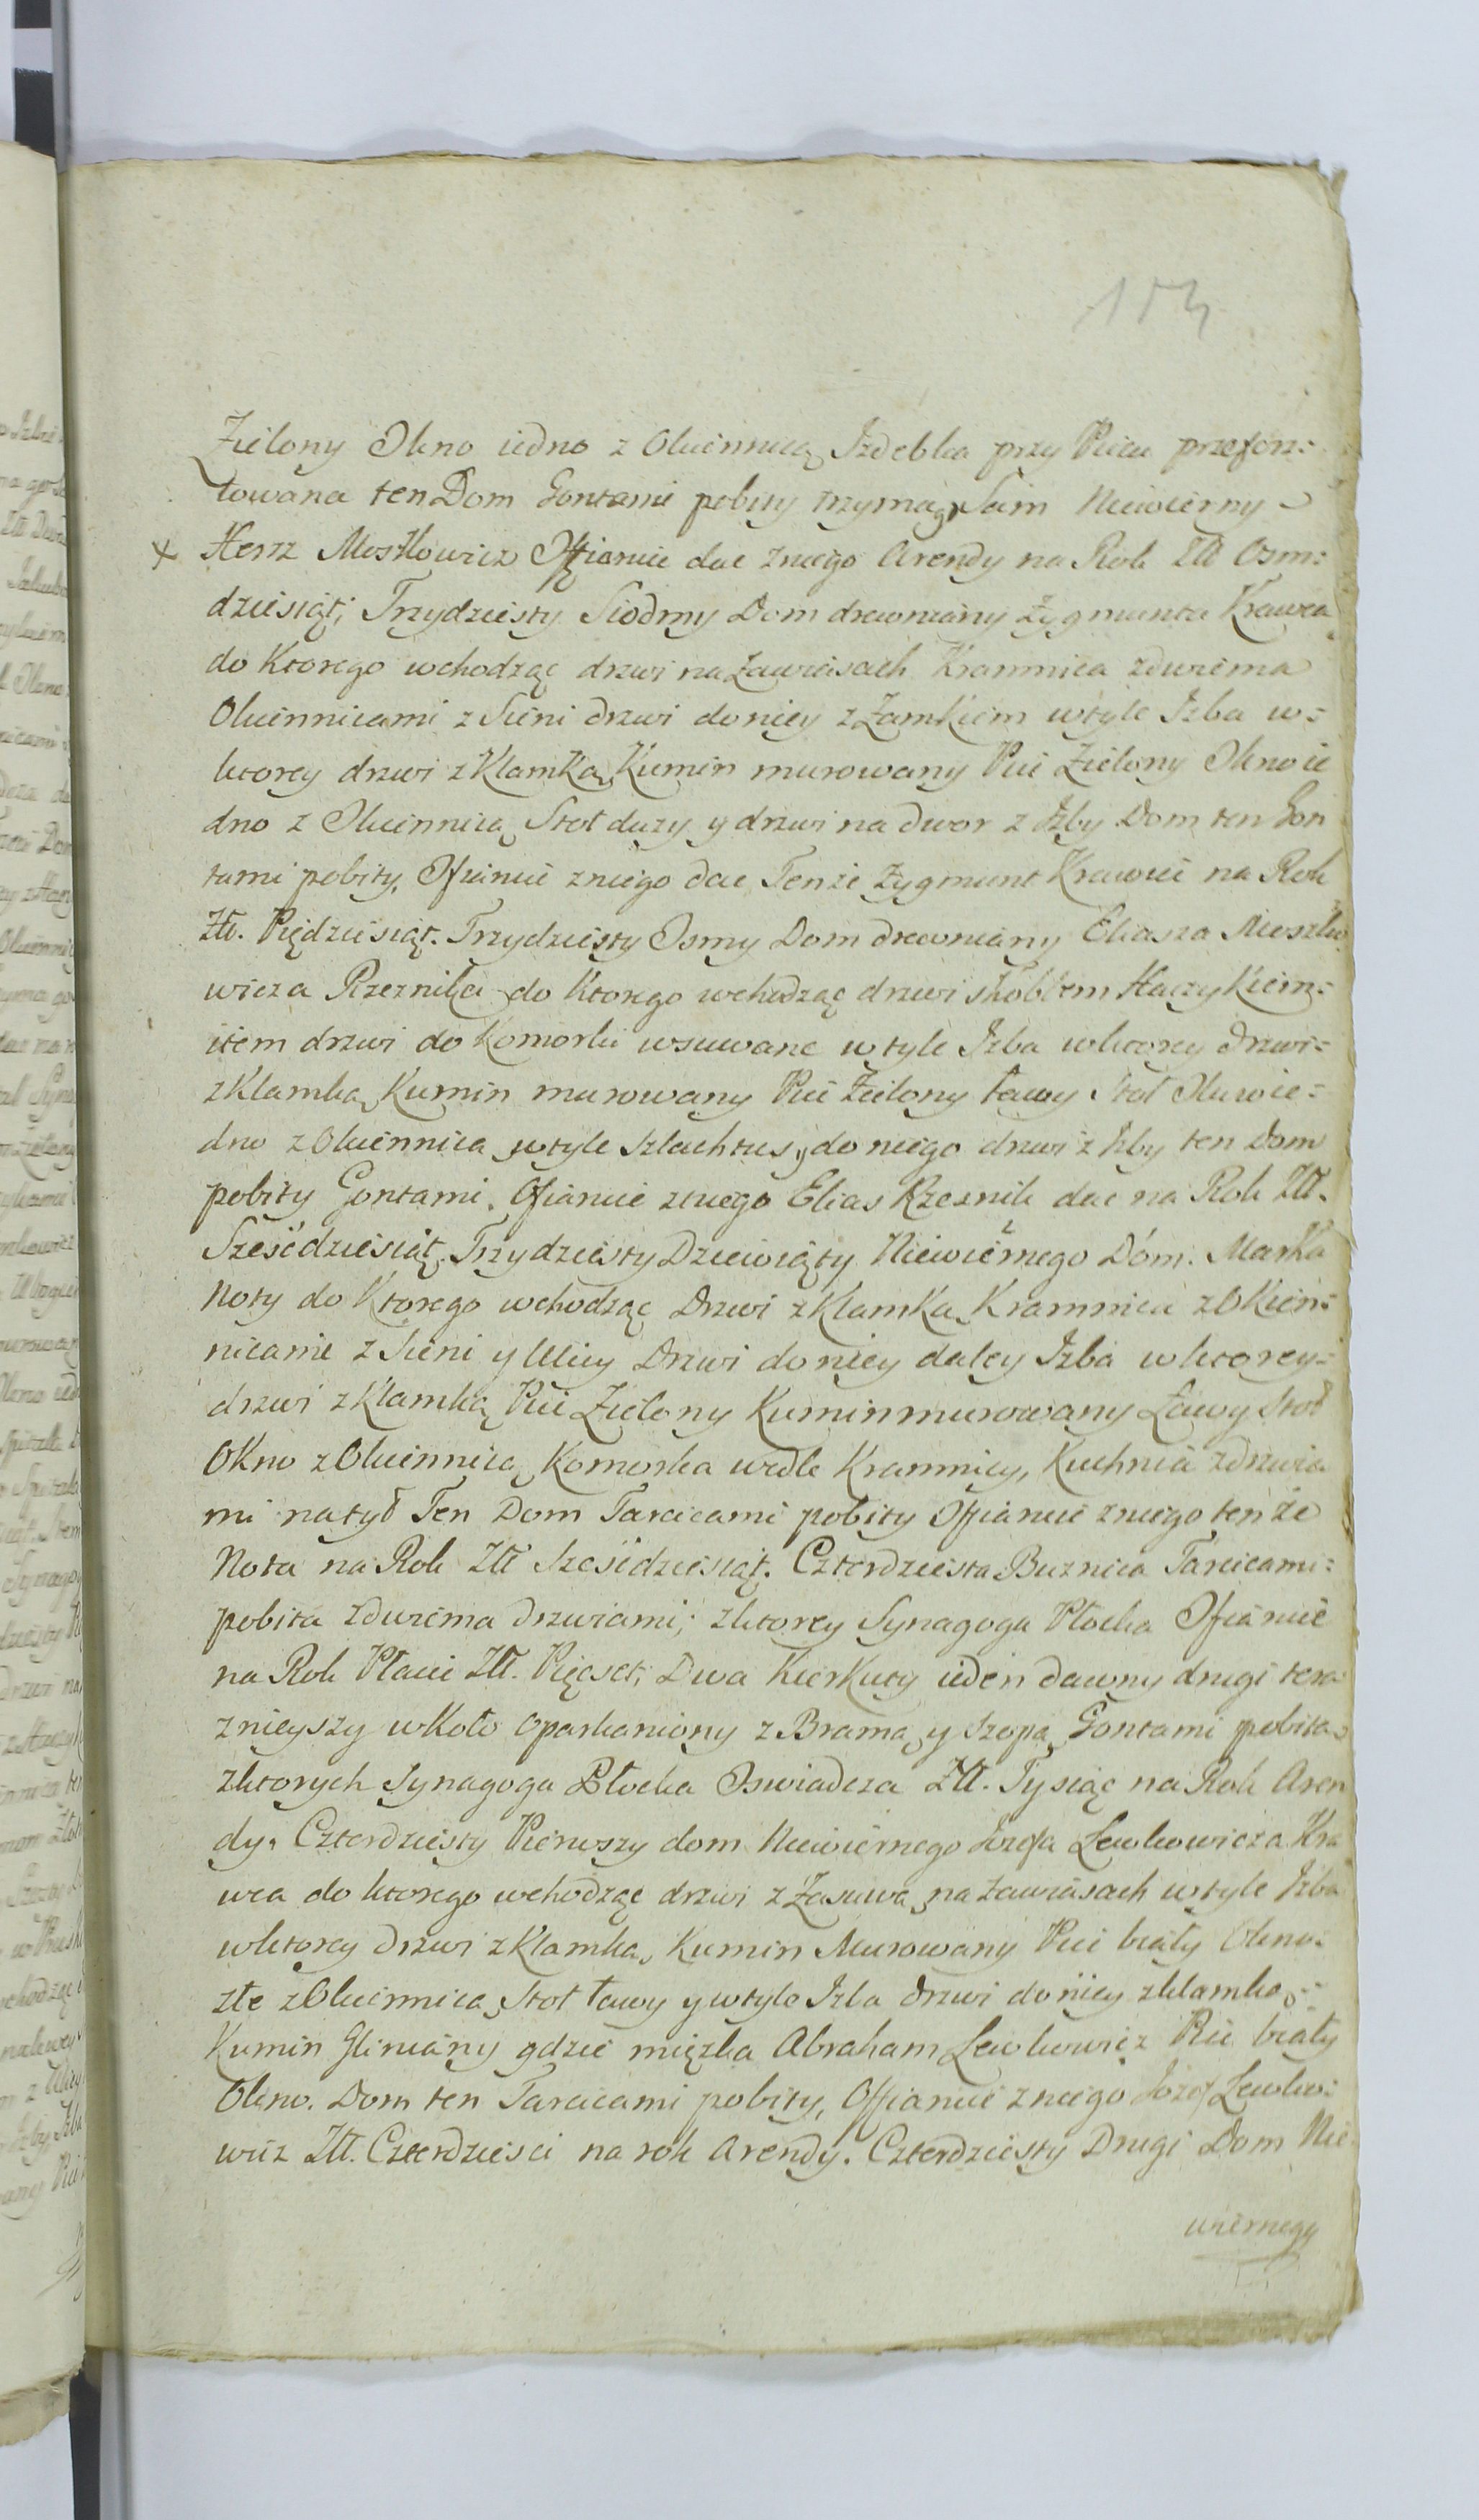 153
Zielony Okno iedno z Okiennicą Izdebka przy Piecu przeforsz=
towana ten Dom Gontami pobity trzyma go Sam Niewierny
x Hersz Moszkowicz Offiaruie dac z niego Arendy na Rok Złł Osm=
dziesiąt; Trzydziesty Siodmy Dom drewniany Zygmunta Krawca
do Ktorego wchodząc drzwi na Zawiasach Kramnica z dwiema
Okiennicami z Sieni drzwi do niey z Zamkiem w tyle Izba w=
ktorey drzwi z Klamką Kumin murowany Piec Zielony Okno ie
dno z Okiennicą Stoł duzy y drzwi na dwor z Izby Dom ten Gon
tami pobity, Ofiaruie z niego dac Tenże Zygmunt Krawiec na Rok
Złł. Piędziesiąt. Trzydziesty Osmy Dom drewniany Eliasza Moszko
wicza Rzeznika do Ktorego wchodząc drzwi skoblem Haczykiem=
item drzwi do Komorki wsuwane w tyle Izba w ktorey drzwi=
z Klamką Kumin murowany Piec Zielony Ławy Stoł Okno ie=
dno z Okiennicą w tyle Szlachtus y do niego drzwi z Izby ten Dom
pobity Gontami. Ofiaruie z niego Elias Rzeznik dac na Rok Złł.
Sześćdziesiąt. Trzydziesty Dziewiąty Niewiernego Dóm. Marka
Noty do Ktorego wchodząc Drzwi z Klamką Kramnica z Okien=
nicami z Sieni y Ulicy Drzwi do niey daley Izba w ktorey=
drzwi z Klamką Piec Zielony Kumin murowany Ławy Stoł
Okno z Okiennicą Komorka wedle Kramnicy, Kuchnia z drzwia
mi na tył Ten Dom Tarcicami pobity Offiaruie z niego tenże
Nota na Rok Złł Sześćdziesiąt. Czterdziesta Buznica Tarcicami=
pobita z dwiema drzwiami; z ktorey Synagoga Płocka Ofiaruie
na Rok Płacic Złł. Pięcset; Dwa Kierkuty ieden dawny drugi tera
znieyszy w Koło oparkaniony z Bramą y Szopą Gontami pobitą
z ktorych Synagoga Płocka Oswiadcza Złł. Tysiąc na Rok Aren
dy. Czterdziesty Pierwszy dom Niewiernego Jozefa Lewkowicza Kra
wca do ktorego wchodząc drzwi z Zasuwą na zawiasach w tyle Izba
w ktorey drzwi z Klamką, Kumin Murowany Piec biały Okno=
złe z Okiennicą Stoł Ławy y w tyle Izba drzwi do niey z klamką=
Kumin Gliniany gdzie mięszka Abraham Lewkowicz Piec biały
Okno. Dom ten Tarcicami pobity, Offiaruie z niego Jozef Lewko=
wicz Złł. Czterdziesci na rok Arendy. Czterdziesty Drugi Dom Nie
wiernego